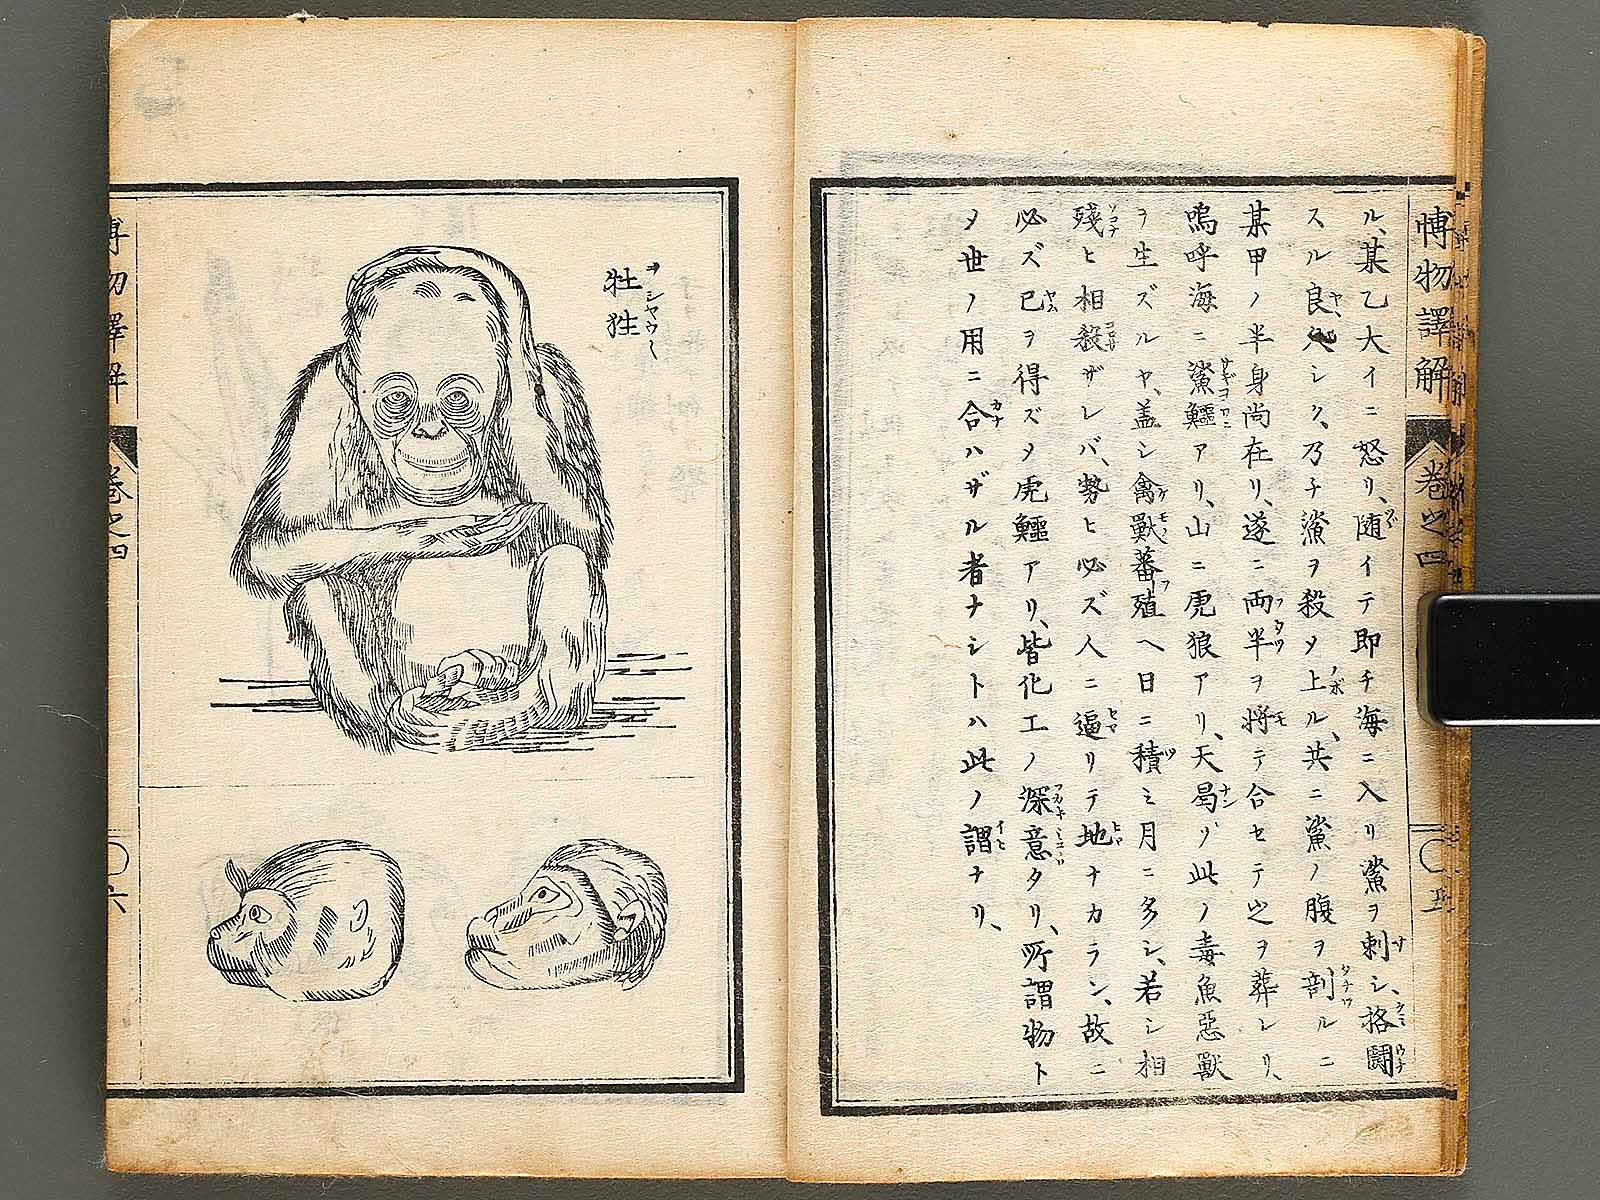 博物譯解
巻之四
〇五
ル、某乙大イニ怒リ、随イテ即チ海ニ入リ鯊ヲ刺シ、格闘
スル良久シク、乃チ鯊ヲ殺メ上ル、共ニ鯊ノ腹ヲ剖ルニ
某甲ノ半身尚在リ、遂ニ両半ヲ将テ合セテ之ヲ葬レリ、
嗚呼海ニ鯊鱷アリ、山ニ虎狼アリ、天曷ゾ此ノ毒魚惡獸
ヲ生ズルヤ、盖シ禽獸蕃殖ヘ日ニ積ミ月ニ多シ、若シ相
殘ヒ相殺ザレバ、勢ヒ必ズ人ニ逼リテ地ナカラン、故ニ
必ズ已ヲ得ズメ虎鱷アリ、皆化工ノ深意タリ、所謂物ト
メ世ノ用ニ合ハザル者ナシトハ此ノ謂ナリ、
牡狌
博物譯解
巻之四
〇六